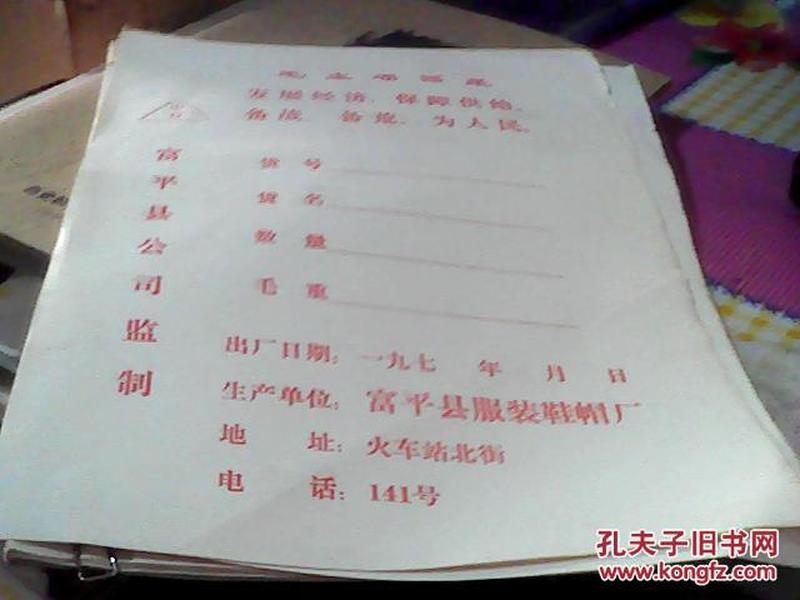 毛主席语录
发展经济，保障供给。
备战、备荒、为人民。
富平县公司监制
货 号
货 名
数 量
毛 重
出厂日期：一九七 年 月 日
生产单位：富平县服装鞋帽厂
地 址：火车站北街
电 话：141号
孔夫子旧书网
www.kongfz.com